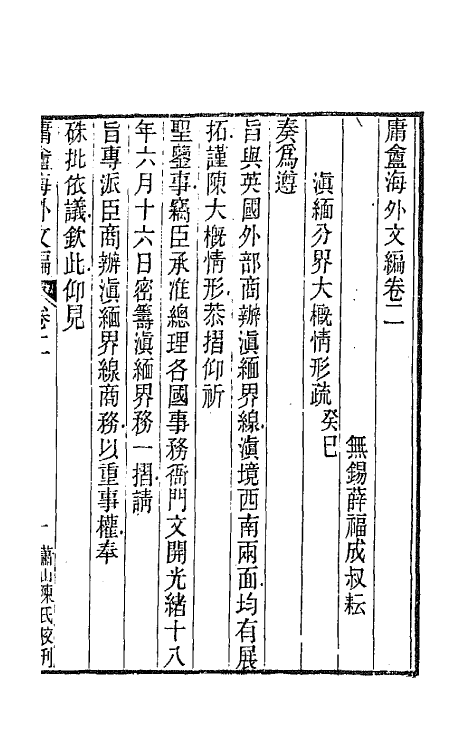 庸盦海外文編卷二
無錫薛福成叔耘
滇緬分界大概情形疏 癸巳
奏爲遵
旨與英國外部商辦滇緬界線滇境西南兩面均有展
拓謹陳大概情形恭摺仰祈
聖鑒事竊臣承准總理各國事務衙門文開光緒十八
年六月十六日密籌滇緬界務一摺請
旨專派臣商辦滇緬界線商務以重事權奉
硃批依議欽此仰見
庸盦海外文編 卷二 一 蕭山陳氏校刊